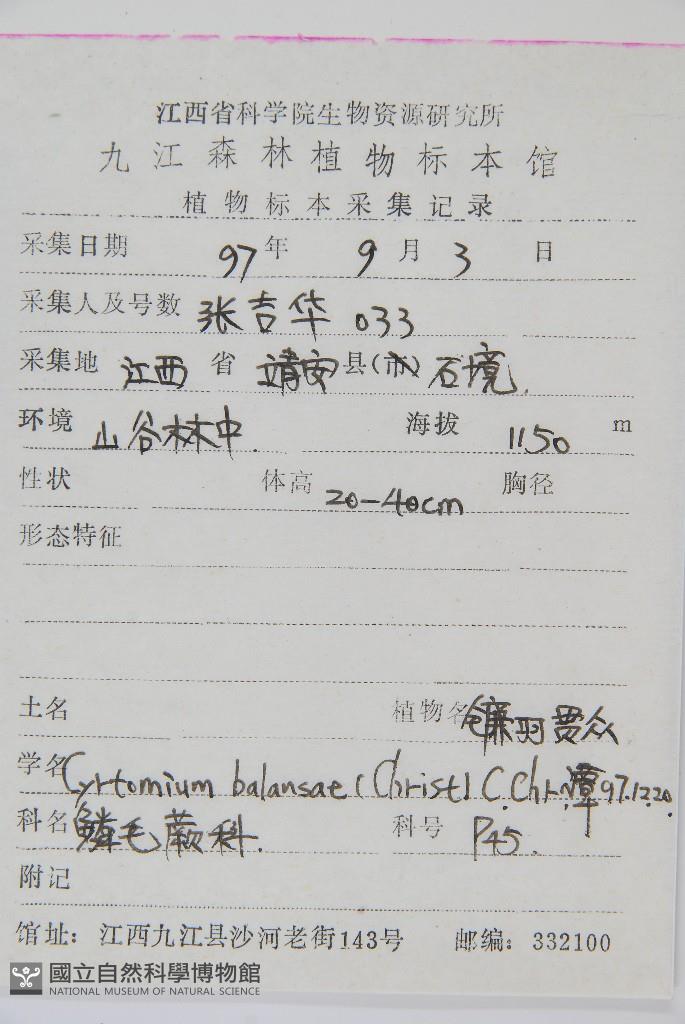 江西省科学院生物资源研究所
九江森林植物标本馆
植物标本采集记录
采集日期 97年 9月 3 日
采集人及号数 张吉华 033
采集地 江西 省 靖安县(市) 石境.
环境 山谷林中. 海拔 1150 m
性状 体高 20-40cm 胸径
形态特征
土名 植物名 镰羽贯众
学名 Cyrtomium balansae (Christ) C.Chr. 97.12.20.
科名 鳞毛蕨科. 科号 P45.
附记
馆址:江西九江县沙河老街143号 邮编:332100
國立自然科學博物館
NATIONAL MUSEUM OF NATURAL SCIENCE